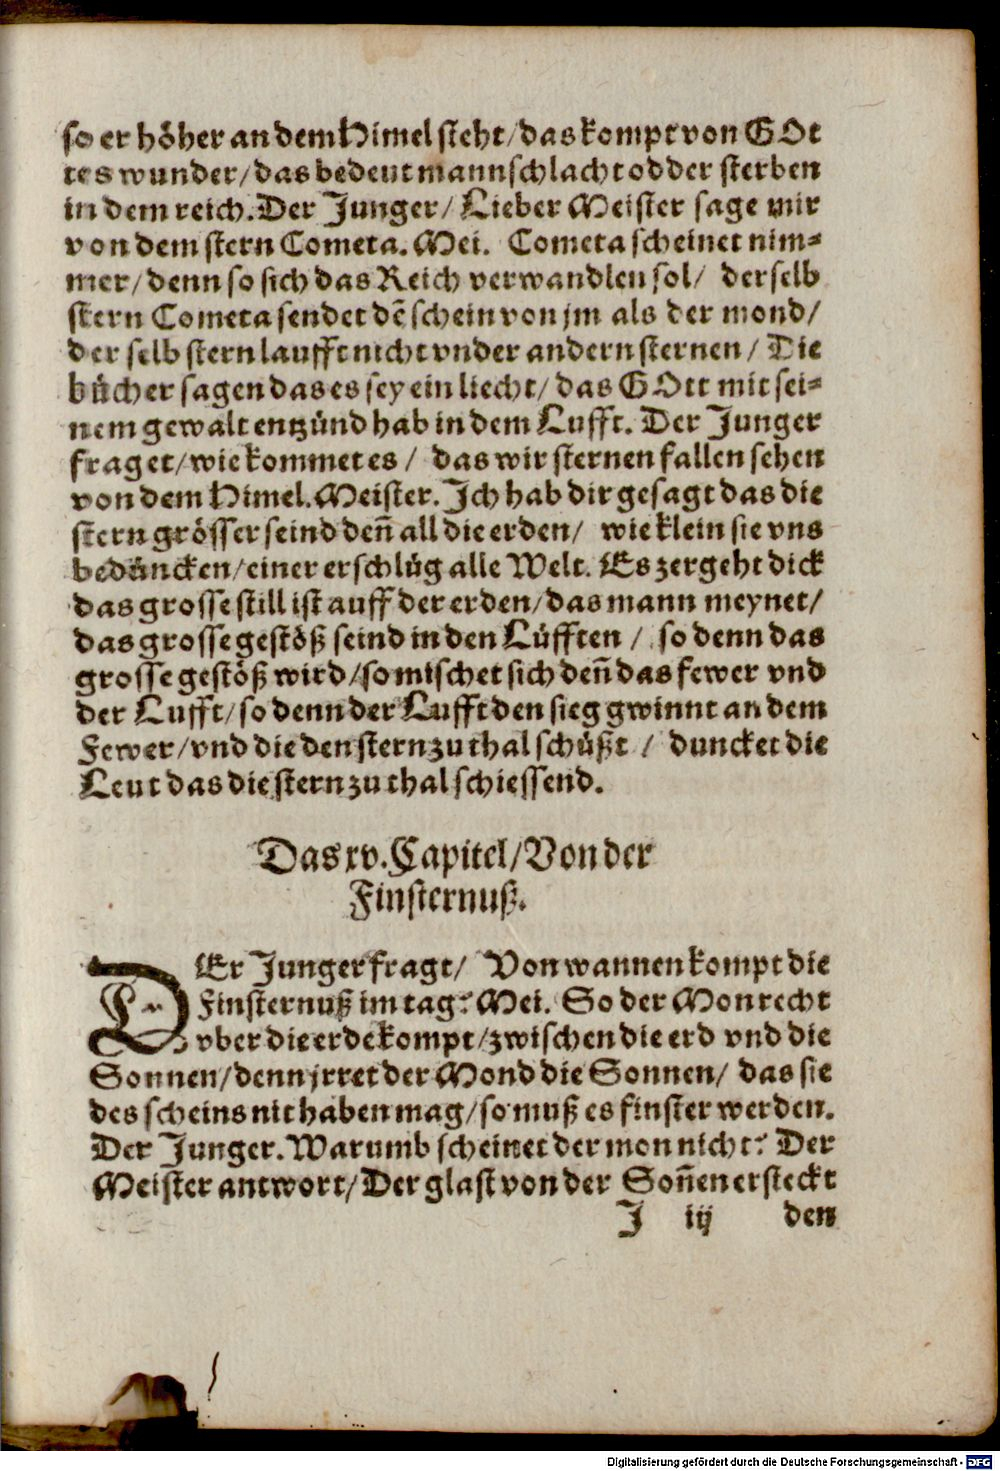 so er höher an dem Himel steht/das kompt von GOt
tes wunder/das bedeut mannschlacht odder sterben
in dem reich. Der Junger/ Lieber Meister sage mir
von dem stern Cometa. Mei. Cometa scheinet nim⸗
mer/denn so sich das Reich verwandlen sol/ der selb
stern Cometa sendet dē schein von jm als der mond/
der selb stern laufft nicht vnder andern sternen/ Die
bücher sagen das es sey ein liecht/das GOtt mit sei⸗
nem gewalt entzünd hab in dem Lufft. Der Junger
fraget/wie kommet es/ das wir sternen fallen sehen
von dem Himel. Meister. Ich hab dir gesagt das die
stern grösser seind deñ all die erden/ wie klein sie vns
bedüncken/einer erschlüg alle Welt. Es zergeht dick
das grosse still ist auff der erden/das mann meynet/
das grosse gestöß seind in den Lüfften/ so denn das
grosse gestöß wird/so mischet sich deñ das fewer vnd
der Lufft/so denn der Lufft den sieg gwinnt an dem
Fewer/vnd die den stern zu thal schüßt/ duncket die
Leut das die stern zu thal schiessend.
Das xv. Capitel/Von der
Finsternuß.
DEr Junger fragt/ Von wannen kompt die
Finsternuß im tag? Mei. So der Mon recht
vber die erde kompt/zwischen die erd vnd die
Sonnen/denn jrret der Mond die Sonnen/ das sie
des scheins nit haben mag/so muß es finster werden.
Der Junger. Warumb scheinet der mon nicht? Der
Meister antwort/Der glast von der Soñen ersteckt
J iij den
Digitalisierung gefördert durch die Deutsche Forschungsgemeinschaft - DFG